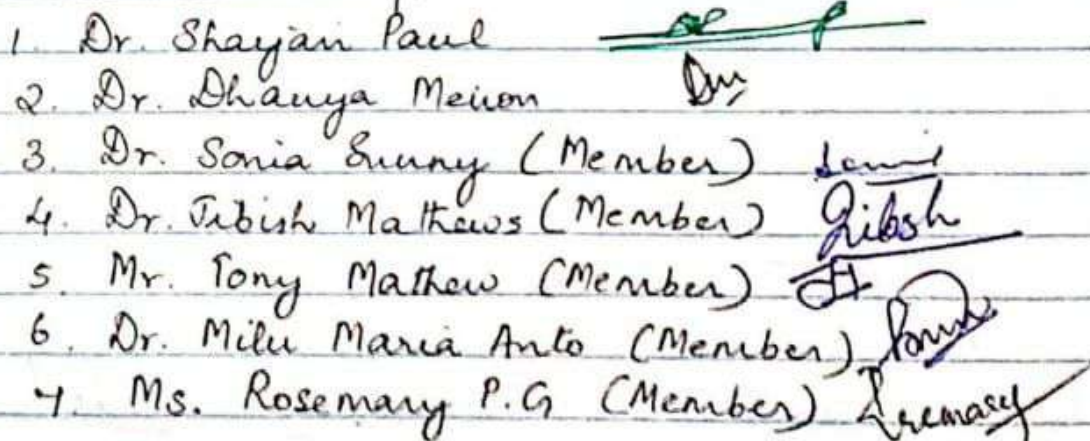 1. Dr. Shayjan Paul
2. Dr. Dhanya Menon
3. Dr. Sonia Sunny (Member)
4. Dr. Jibish Mathews (Member) Jibish
5. Mr. Tony Mathew (Member)
6. Dr. Milu Maria Anto (Member)
7. Ms. Rosemary P.G (Member)